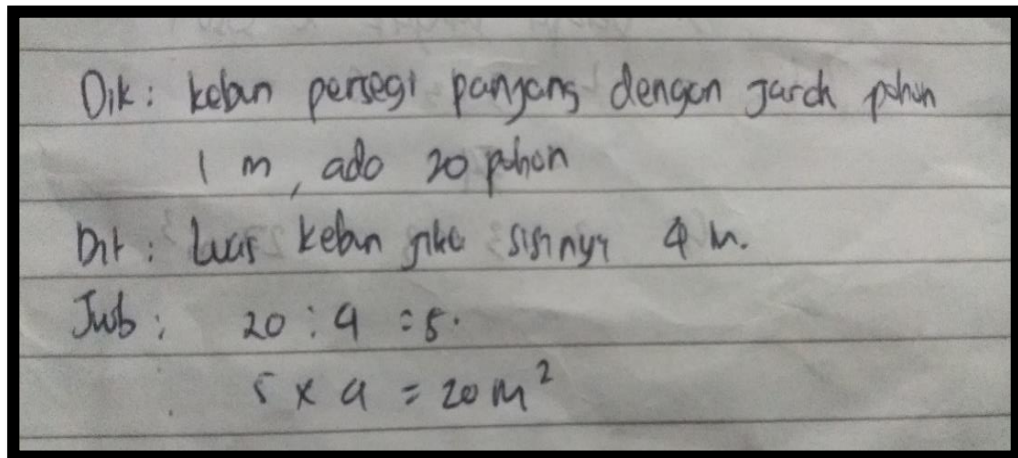 Dik: kebun persegi panjang dengan jarak pohon
1 m, ada 20 pohon
Dit: Luas kebun jika sisinya 4 m.
Jwb: 20 : 4 = 5.
5 x 4 = 20 m²